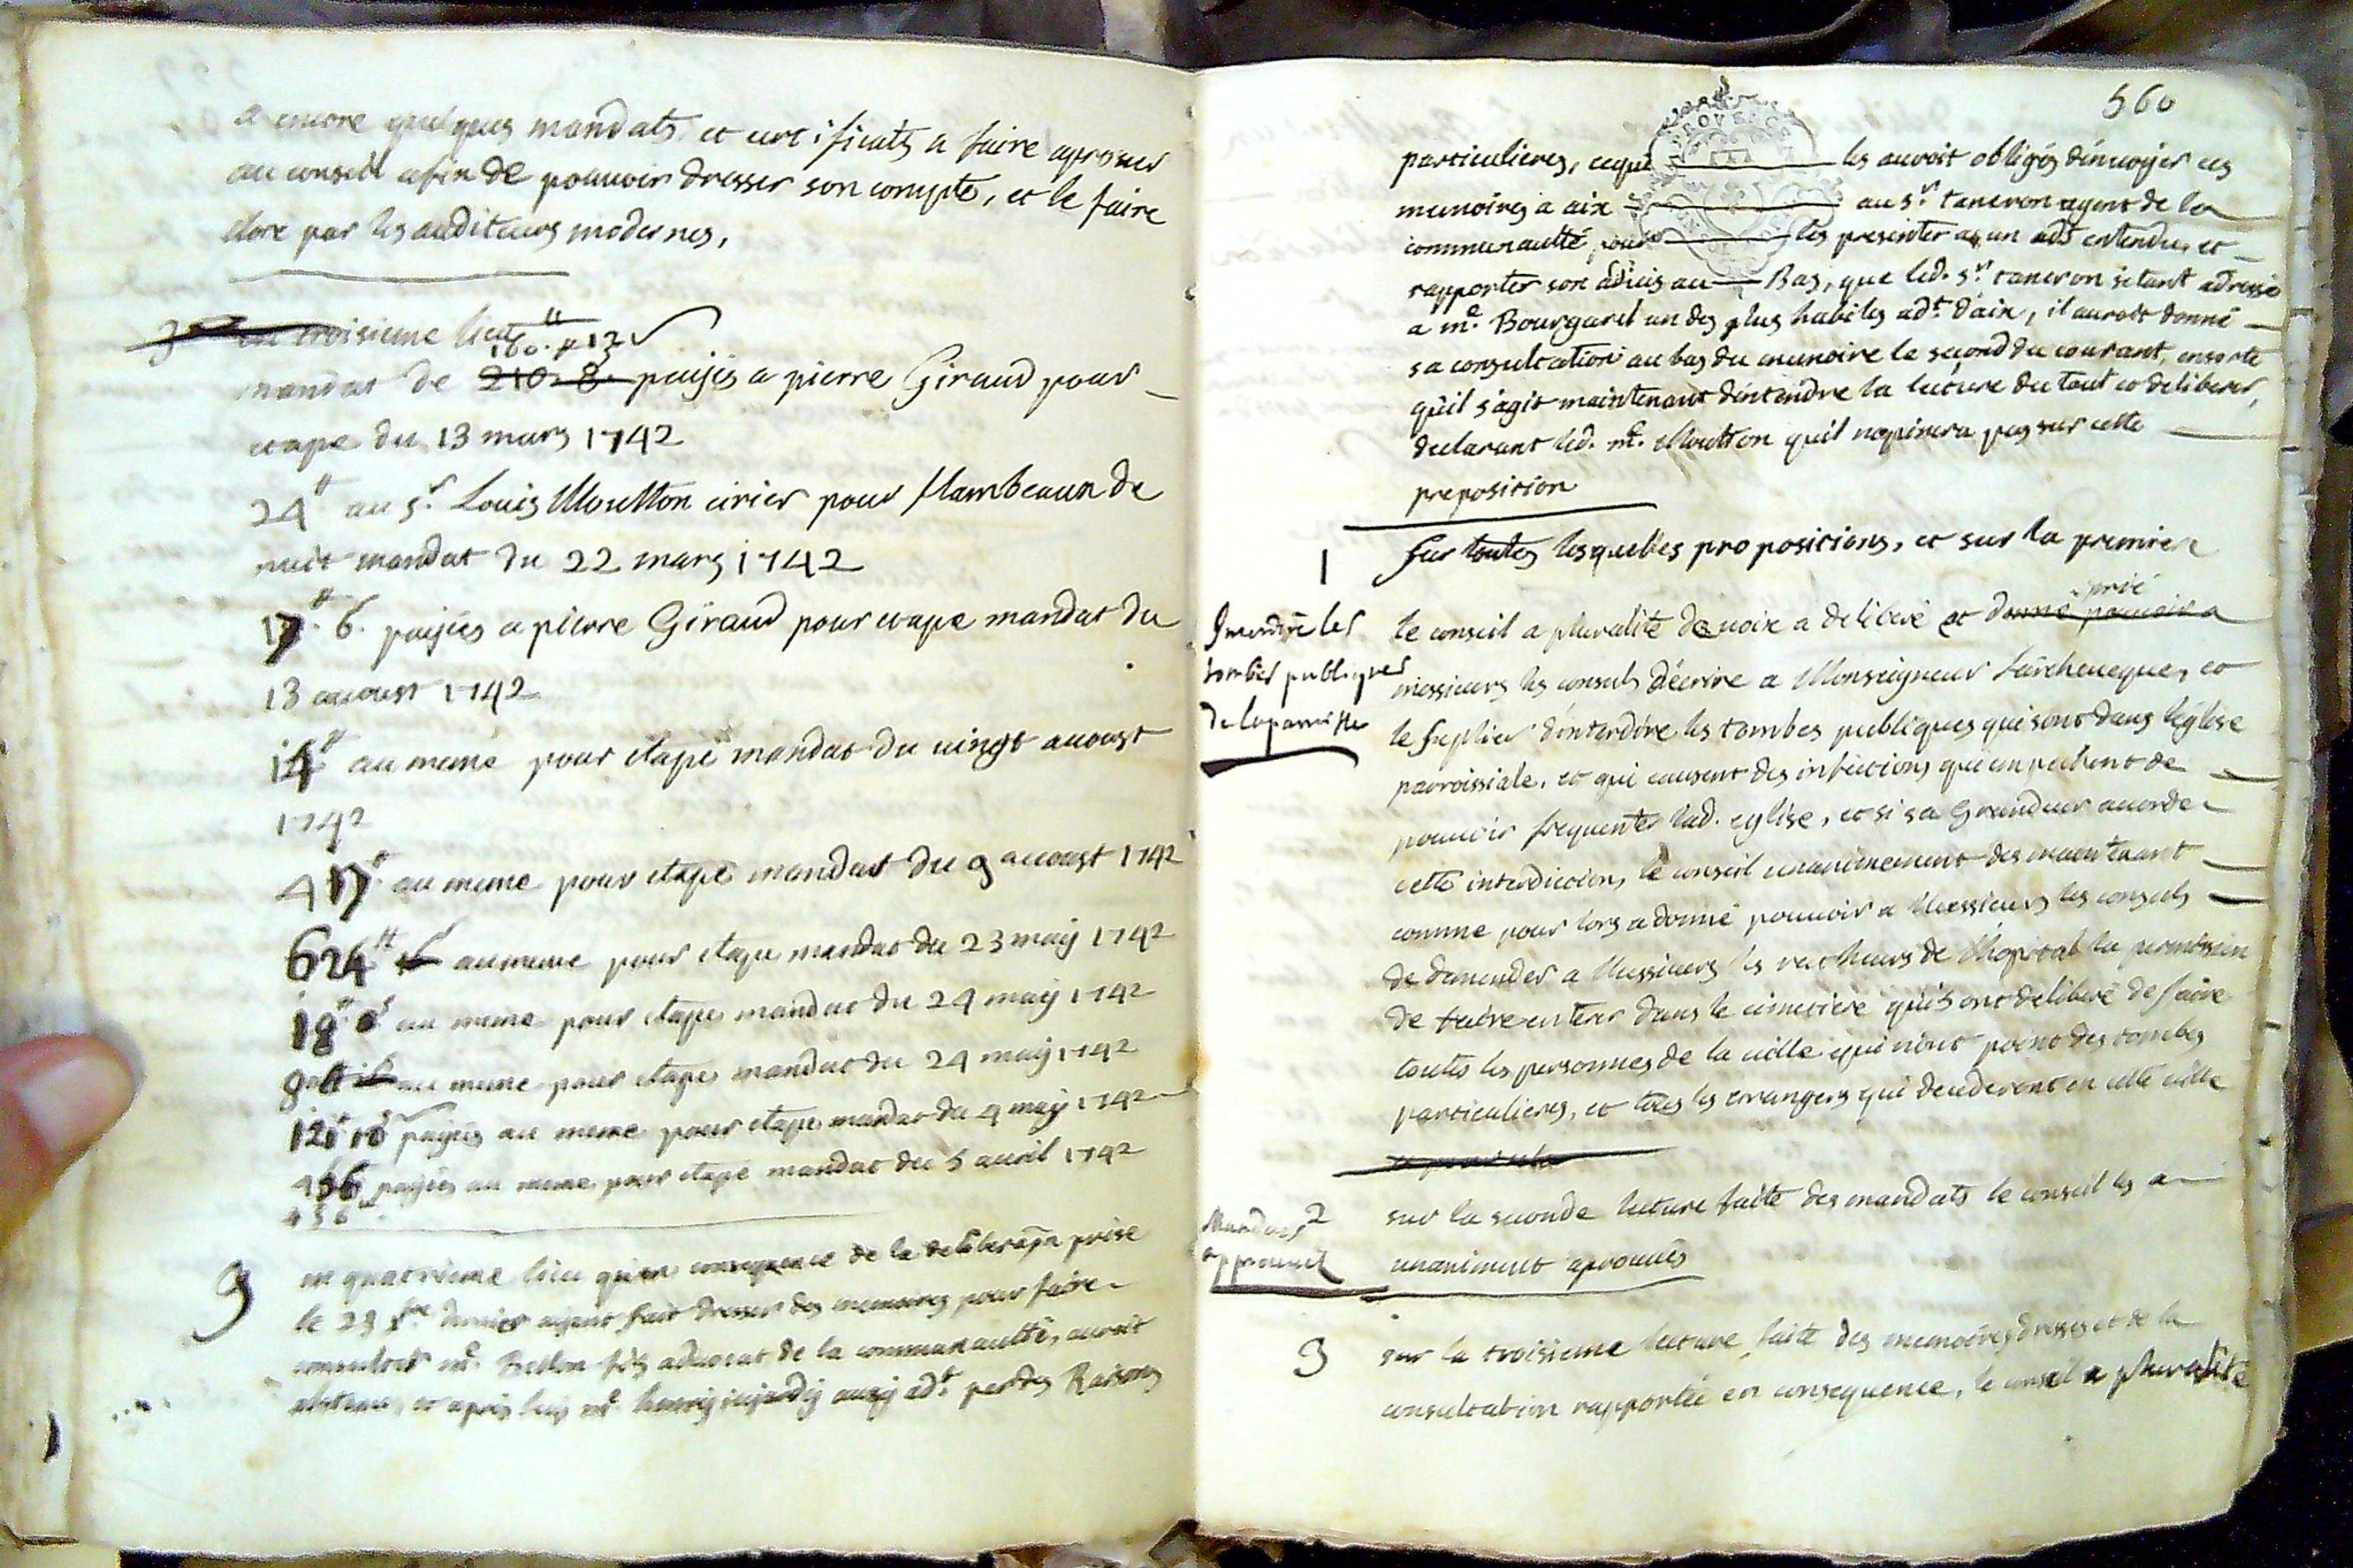 a encore quelques mandats et certificats a faire aprouver
au conseil afin de pouvoir dresser son compte, et le faire
clore par les auditeurs modernes,
3 en troisieme lieu
160.# 12
mandat de 210. 8. payés a pierre Giraud pour
etape du 13 mars 1742
24# au sr. Louis Moutton cirier pour flambeaux de
nuit mandat du 22 mars 1742
17#. 6. payées a pierre Giraud pour etape mandat du
13 auoust 1742
14# au meme pour etape mandat du uingt auoust
1742
417# au meme pour etape mandat du 9 auoust 1742
624# au meme pour etape mandat du 23 maÿ 1742
18# au meme pour etape mandat du 24 maÿ 1742
au meme pour etape mandat du 24 maÿ 1742
payées au meme pour etape mandat du 4 maÿ 1742
456 payées au meme pour etape mandat du 5 auril 1742
456#.
3 en quatrieme lieu qu'en consequence de la deliberaon prise
le 23 xbre dernier ayant fait dresser des memoires pour faire
consulter me. Bellon fils aduocat de la communautté, auroit
et apres luy me auzy adt. par des Raisons
560
PROVENCE
particulieres, ceque les auroit obligés d'enuoyer ces
memoires a aix au sr. taneron agent de la
communautté pour les presenter a un adt entendu, et
rapporter son aduis au Bas, que led. sr. taneron s'etant adressé
a me. Bourgarel un des plus habiles adt. d'aix, il auroit donné
sa consultation au bas du memoire le second du courant, ensorte
qu'il s'agit maintenant d'entendre la lecture du tout et deliberer,
declarant led. me. Moutton qu'il nopinera pas sur cette
preposition
1 Sur toutes lesquelles propositions, et sur la premiere
prié
Interdire les
tombes publiques
de la paroisse
le conseil a pluralité de uoix a deliberé et donné pouuoir a
messieurs les consuls d'écrire a Monseigneur l'archeueque, et
le suplier d'interdire les tombes publiques qui sont dans l'église
parroissiale, et qui causent des infections qui empechent de
pouuoir frequenter lad. eglise, et si sa Grandeur acorde
cette interdiction, le conseil unanimement des maintenant
comme pour lors a donné pouuoir a Messieurs les consuls
de demander a Messieurs les recteurs de l'hopital la permission
de faire enterer dans le cimetiere qu'ils ont deliberé de faire
toutes les personnes de la uille qui n'ont point des tombes
particulieres, et tous les etrangers qui decederont en cette uille
Mandats
approuués
2 sur la seconde lecture faite des mandats le conseil les a
unanimemt aprouués
3 sur la troisieme lecture faite des memoires dressés et de la
consultation rapportée en consequence, le conseil a pluralité